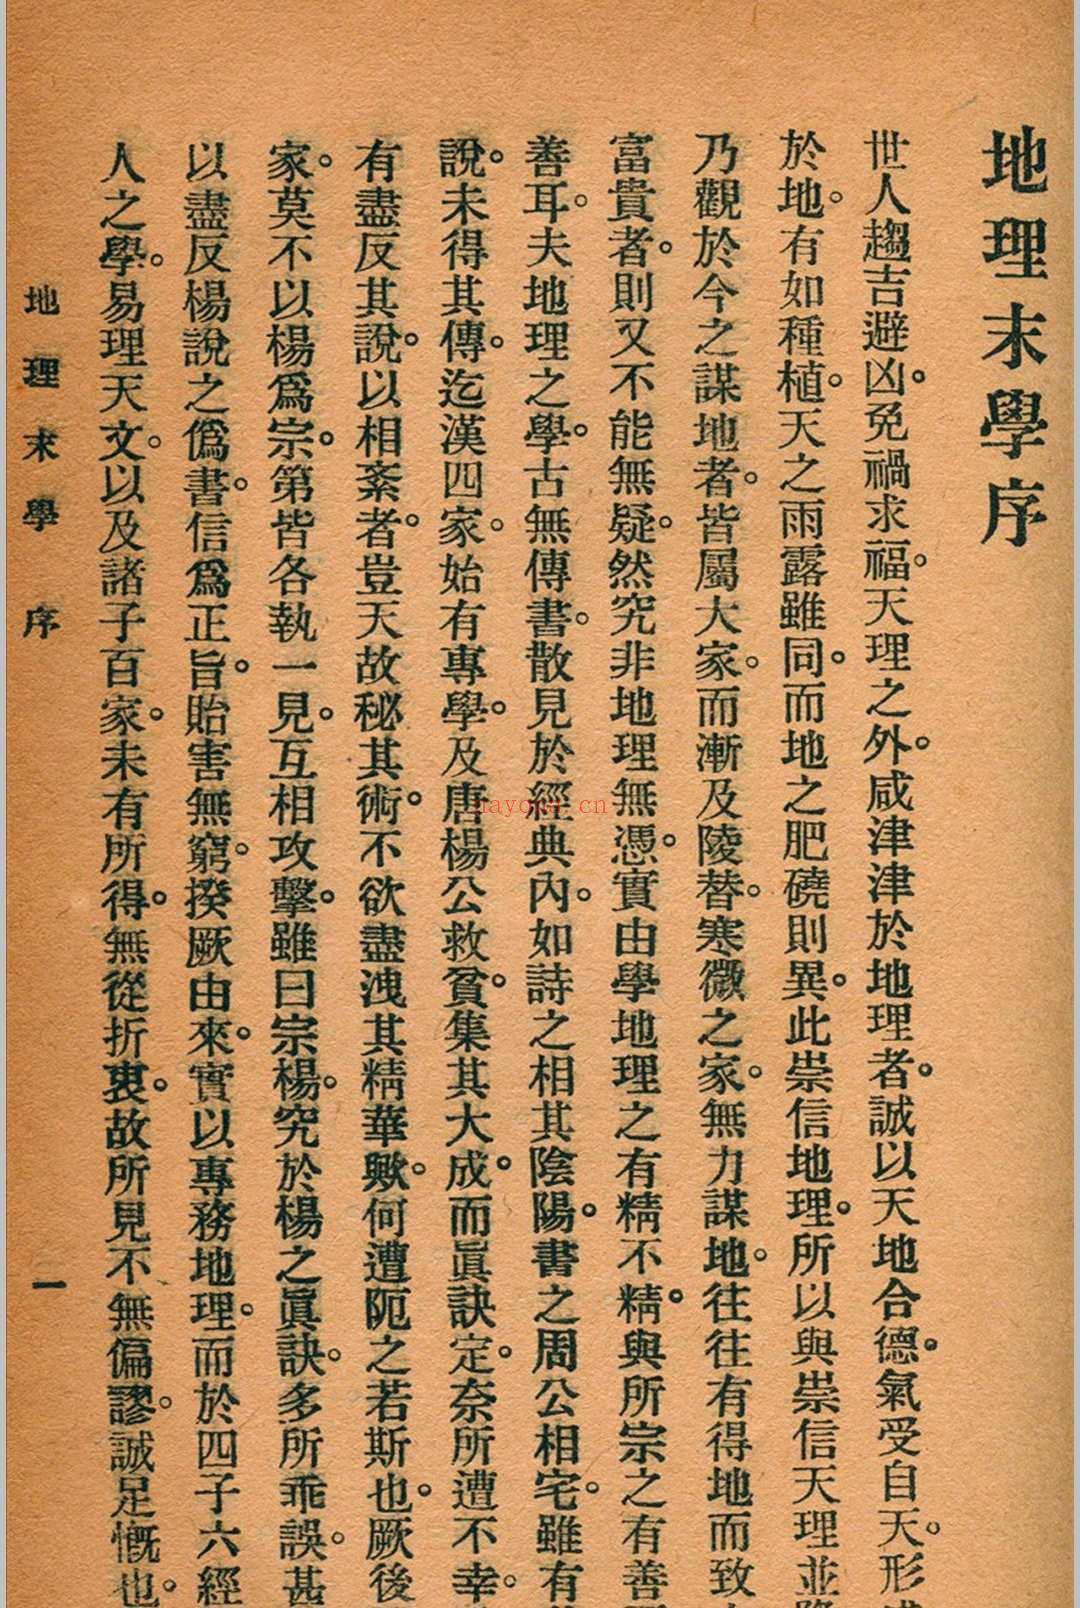 地理末學序
世人趨吉避凶。免禍求福。天理之外。咸津津於地理者。誠以天地合德。氣受自天。形
於地。有如種植。天之雨露雖同。而地之肥磽則異。此崇信地理。所以與崇信天理並
乃觀於今之謀地者。皆屬大家。而漸及陵替。寒微之家。無力謀地。往往有得地而致
富貴者。則又不能無疑。然究非地理無憑。實由學地理之有精不精。與所宗之有善
善耳。夫地理之學。古無傳書。散見於經典內。如詩之相其陰陽。書之周公相宅。雖有
說。未得其傳。迄漢四家。始有專學。及唐楊公救貧。集其大成。而眞訣定。奈所遭不幸。
有盡反其說。以相紊者。豈天故秘其術。不欲盡洩其精華歟。何遭阨之若斯也。厥後
家。莫不以楊爲宗。第皆各執一見。互相攻擊。雖曰宗楊。究於楊之眞訣。多所乖誤。甚
以盡反楊說之僞書。信爲正旨。貽害無窮。揆厥由來。實以專務地理。而於四子六經
人之學。易理天文。以及諸子百家。未有所得。無從折衷。故所見不無偏謬。誠足慨也。
地理末學 序
一
nayona.cn